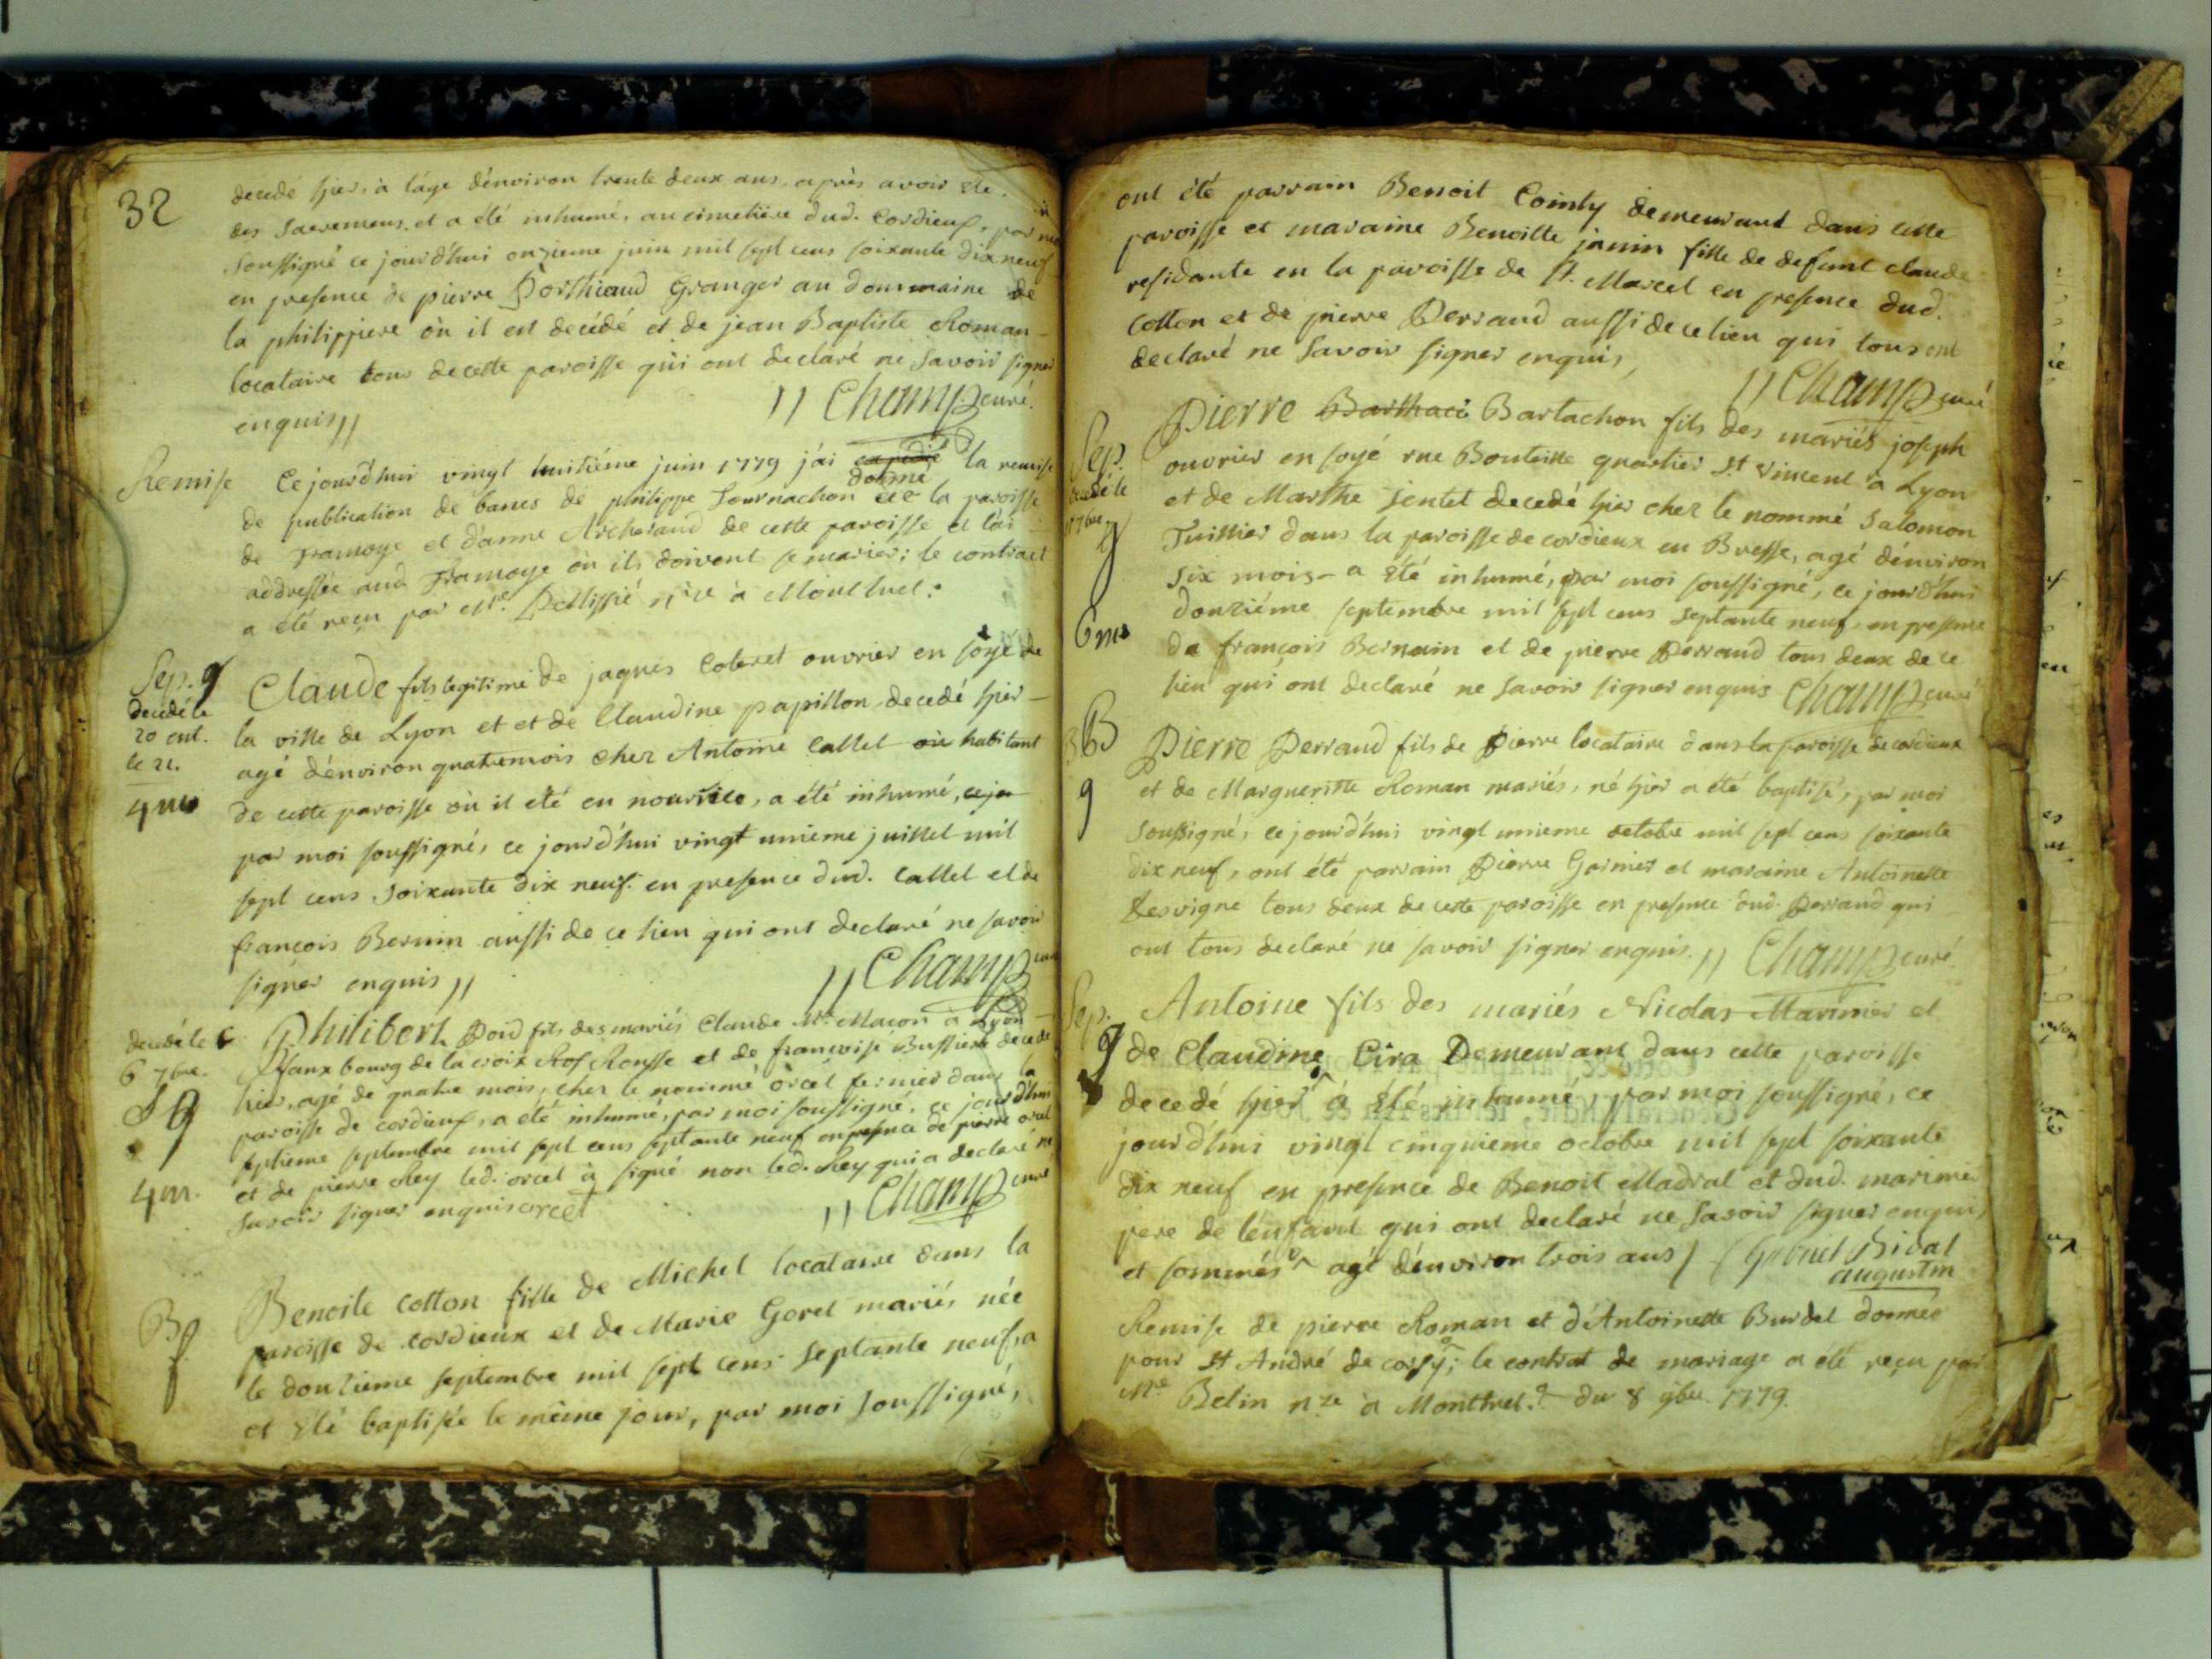 32
decedé hier, à l'age d'environ trente deux ans, après avoir eté
des Sacremens, et a été inhumé, au cimetiere dud. Cordieux, par moi
soussigné ce jourd'hui onzieme juin mil sept cens soixante dix neuf
en presence de pierre Porthiaud Granger au dommaine de
la philippiere où il est decédé et de jean Baptiste Roman
locataire tous de cette paroisse qui ont declaré ne savoir signer
enquis //
// Champ curé.
Remise
Ce jourd'hui vingt huitiéme juin 1779 j'ai donné la remise
de publication de bancs de philippe Tournachon de la paroisse
de Tramoye et d'anne Archeraud de cette paroisse et l'ai
addressée aud Tramoye où ils doivent se marier; le contract
a été reçu par Me. Pellissié nre à Montluel:
Sep. g
decedé le
20 ent.
le 21.
4 m
Claude fils legitime de jaques Coteret ouvrier en soye de
la ville de Lyon et et de Claudine papillon decedé hier
agé d'environ quatremois chez Antoine Callet habitant
de cette paroisse où il eté en nourrice, a été inhumé,
par moi soussigné, ce jourd'hui vingt unieme juillet mil
sept cens soixante dix neuf. en presence dud. Callet et de
françois Bernin aussi de ce lieu qui ont declaré ne savoir
signer enquis //
// Champ curé
decedé le
6 7bre.
S g
4 m.
Philibert Doid fils des mariés Claude Me. Macon à Lyon
faux bourg de la croix Rousse et de françoise Bussiere decedé
hier, agé de quatre mois, chez le nommé orcel fermier dans la
paroisse de cordieux, a été inhumé, par moi soussigné, ce jourd'hui
septieme septembre mil sept cens septante neuf en presence de pierre orcel
et de pierre Rey led. orcel à signé non led. Rey qui a declaré ne
savoir signer enquis orcel
// Champ curé
B
f.
Benoite Cotton fille de Michel locataire dans la
paroisse de cordieux et de Marie Goret mariés née
le douzieme septembre mil sept cens septante neuf, a
et été baptisée le même jour, par moi soussigné,
ont été parrain Benoit Cointy demeurant dans cette
paroisse et maraine Benoitte janin fille de defunt claude
residante en la paroisse de St. Marcel en presence dud.
Cotton et de pierre Perraud aussi de ce lieu qui tous ont
declaré ne savoir signer enquis,
// Champ curé
Sep.
decedé le
g
6 m
Pierre Bartachon fils des mariés joseph
ouvrier en soyé rue Bouteille quartier St Vincent à Lyon
et de Marthe jentet decedé hier chez le nommé Salomon
Tuillier dans la paroisse de cordieux en Bresse, agé d'environ
six mois - a été inhumé, par moi soussigné, ce jourd'hui
douziéme septembre mil sept cens septante neuf en presence
de françois Bernain et de pierre Perraud tous deux de ce
lieu qui ont declaré ne savoir signer enquis Champ curé
B
g
Pierre Perraud fils de Pierre locataire dans la paroisse de cordieux
et de Margueritte Roman mariés, né hier a été baptisé, par moi
soussigné, ce jourd'hui vingt unieme octobre mil sept cens soixante
dix neuf, ont été parrain Pierre Garnier et maraine Antoinette
Desvigne tous deux de cette paroisse en presence dud. Perraud qui
ont tous declaré ne savoir signer enquis. // Champ curé
Sep.
g
Antoine fils des mariés Nicolas Marinier et
de Claudine Cira Demeurant dans cette paroisse
decedé hier à été inhumé, par moi soussigné, ce
jourd'hui vingt cinquieme octobre mil sept soixante
dix neuf en presence de Benoit Madral et dud. marinier
pere de l'enfant qui ont declaré ne savoir signer enquis
et sommés agé d'environ trois ans / Gabriel Bidal
augustin
Remise de pierre Roman et d'Antoinette Burdel donnée
pour St André de corsy; le contrat de mariage a été reçu par
Me Belin nre à Montluel. du 8 9bre 1779.